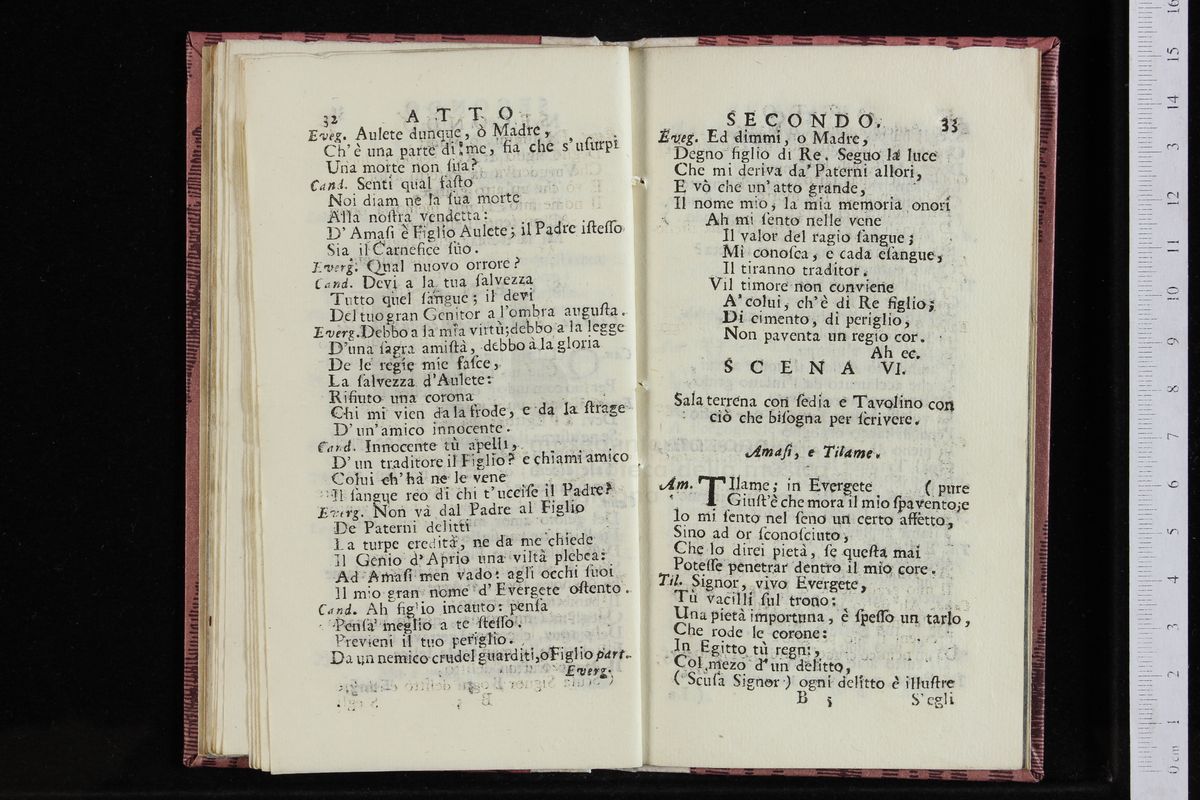 32 ATTO
Eveg. Aulete dunque, ò Madre,
Ch'è una parte di me, ſia che s'uſurpi
Una morte non ſua?
Cand. Senti qual faſto
Noi diam ne la ſua morte
Alla noſtra vendetta:
D'Amaſi è Figlio Aulete; il Padre iſteſſo
Sia il Carnefice ſuo.
Everg. Qual nuovo orrore?
Cand. Devi a la tua ſalvezza
Tutto quel ſangue; il devi
Del tuo gran Genitor a l'ombra auguſta.
Everg. Debbo a la mia virtù; debbo a la legge
D'una ſagra amiſtà, debbo à la gloria
De le regie mie faſce,
La ſalvezza d'Aulete:
Rifiuto una corona
Chi mi vien da la frode, e da la ſtrage
D'un'amico innocente.
Cand. Innocente tù apelli,
D'un traditore il Figlio? e chiami amico
Colui ch'hà ne le vene
Il ſangue reo di chi t'ucciſe il Padre?
Everg. Non và dal Padre al Figlio
De Paterni delitti
La turpe eredità, ne da me chiede
Il Genio d'Aprio una viltà plebea:
Ad Amaſi men vado: agli occhi ſuoi
Il mio gran nome d'Evergete oſtento.
Cand. Ah figlio incauto: penſa
Penſa meglio a te ſteſſo.
Previeni il tuo periglio.
Da un nemico crudel guarditi, o Figlio part.
Everg.
SECONDO. 33
Eveg. Ed dimmi, o Madre,
Degno figlio di Re. Seguo la luce
Che mi deriva da' Paterni allori,
E vò che un'atto grande,
Il nome mio, la mia memoria onori
Ah mi ſento nelle vene
Il valor del ragio ſangue;
Mi conoſca, e cada eſangue,
Il tiranno traditor.
Vil timore non conviene
A' colui, ch'è di Re figlio;
Di cimento, di periglio,
Non paventa un regio cor.
Ah ec.
SCENA VI.
Sala terrena con ſedia e Tavolino con
ciò che biſogna per ſcrivere.
Amaſi, e Tilame.
Am. TIlame; in Evergete ( pure
Giuſt'è che mora il mio ſpavento; e
Io mi ſento nel ſeno un certo affetto,
Sino ad or ſconoſciuto,
Che lo direi pietà, ſe queſta mai
Poteſſe penetrar dentro il mio core.
Til. Signor, vivo Evergete,
Tù vacilli ſul trono:
Una pietà importuna, è ſpeſſo un tarlo,
Che rode le corone:
In Egitto tù regni,
Col mezo d'un delitto,
( Scuſa Signor ) ogni delitto è illuſtre
B 5 S'egli
0 cm 1 2 3 4 5 6 7 8 9 10 11 12 13 14 15 16